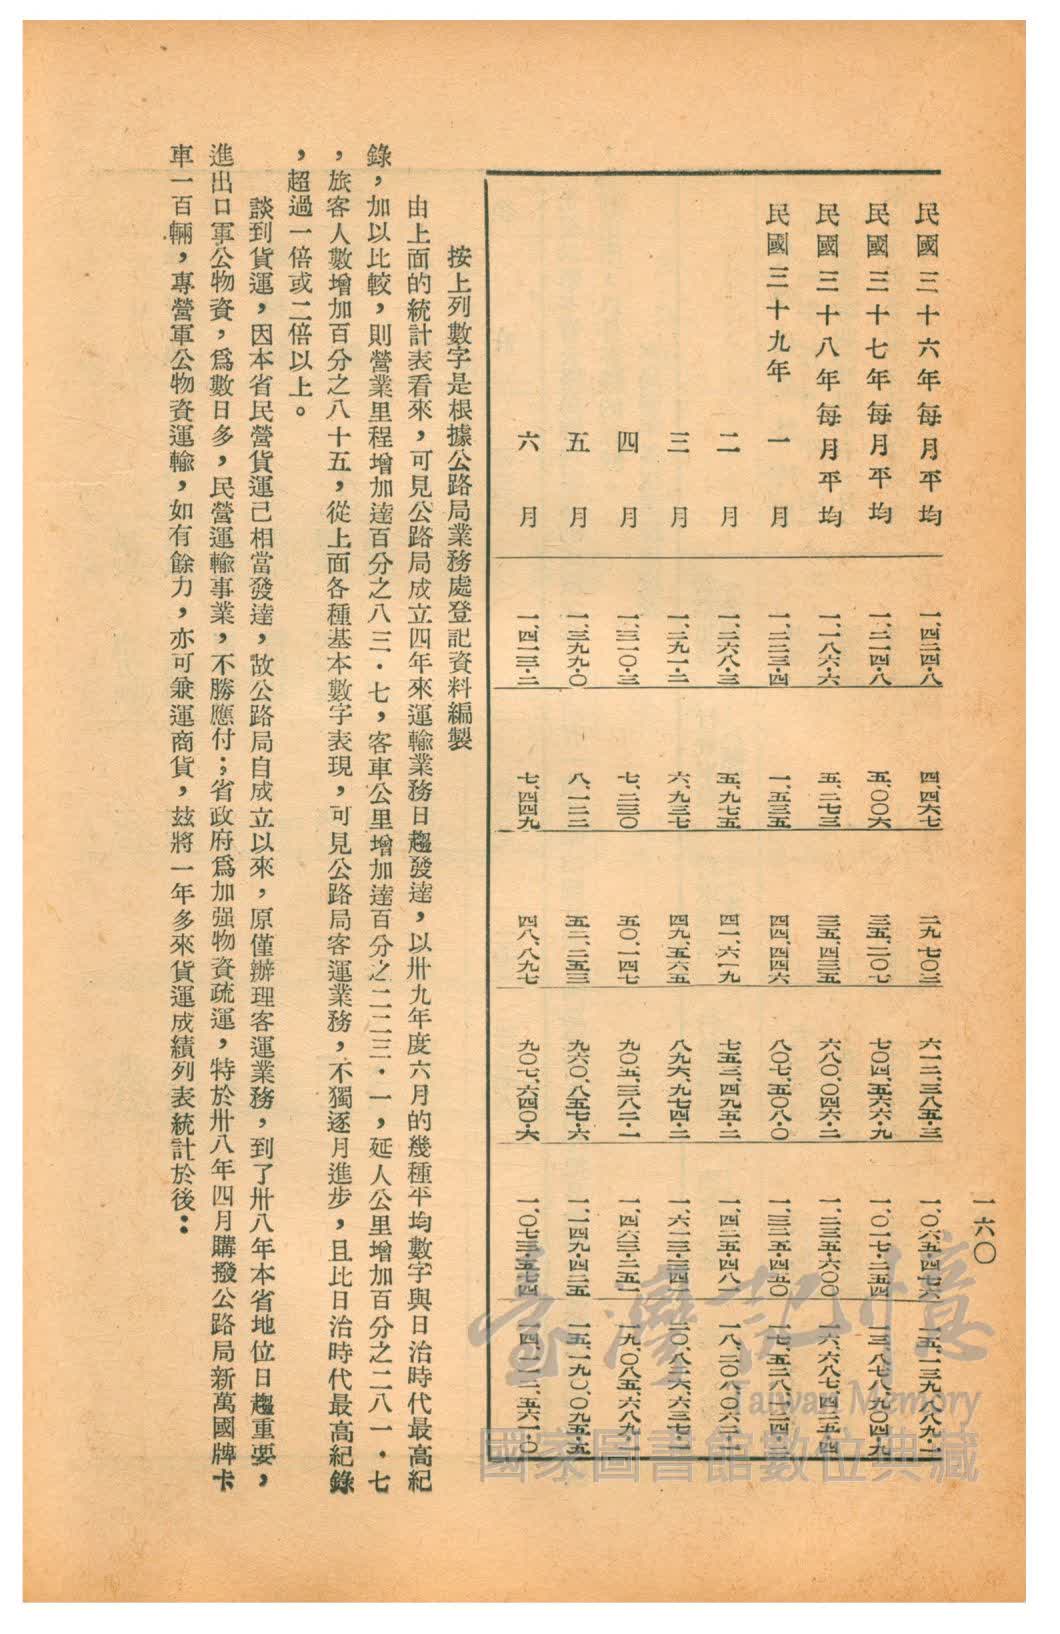 一六〇
民國三十六年每月平均　一、四二四・八　四、四六七　二九、七〇二　六一二、三八五・三　一、〇六五、四七六　一五、一三九、八八九・一
民國三十七年每月平均　一、二一四・八　五、〇〇六　三五、二〇七　七〇四、五六六・九　一、〇一七、二五四　一三、八七八、九〇四・九
民國三十八年每月平均　一、一八六・六　五、二七三　三五、四三五　六八〇、〇四六・二　一、二三五、六〇〇　一六、六八七、四二五・四
民國三十九年　一月　一、二二三・四　一、五三五　四四、四四六　八〇七、五〇八・〇　一、三二五、四五〇
二月　一、二六八・三　五、九七五　四一、六一九　七五二、四九五・二　一、四二五、四八一
三月　一、二九一・二　六、九三七　四九、五六五　八九六、九七四・二
四月　一、三一〇・三　七、二三〇　五〇、一四七　九〇五、三八二・一
五月　一、三九九・〇　八、一二二　五二、二五三　九六〇、八五七・六　一、一四九、四二五　一五、一九〇、〇九五・五
六月　一、四一三・二　七、四四九　四八、八九七　九〇七、六四〇・六　一、〇七三、五七四　一四、一一二、五六一・〇
按上列數字是根據公路局業務處登記資料編製
由上面的統計表看來，可見公路局成立四年來運輸業務日趨發達，以卅九年度六月的幾種平均數字與日治時代最高紀
錄，加以比較，則營業里程增加達百分之八三・七，客車公里增加達百分之二二三・一，延人公里增加百分之二八一・七
，旅客人數增加百分之八十五，從上面各種基本數字表現，可見公路局客運業務，不獨逐月進步，且比日治時代最高紀錄
，超過一倍或二倍以上。
談到貨運，因本省民營貨運已相當發達，故公路局自成立以來，原僅辦理客運業務，到了卅八年本省地位日趨重要，
進出口軍公物資，爲數日多，民營運輸事業，不勝應付；省政府爲加强物資疏運，特於卅八年四月購撥公路局新萬國牌卡
車一百輛，專營軍公物資運輸，如有餘力，亦可兼運商貨，茲將一年多來貨運成績列表統計於後：
臺灣記憶
Taiwan Memory
國家圖書館數位典藏